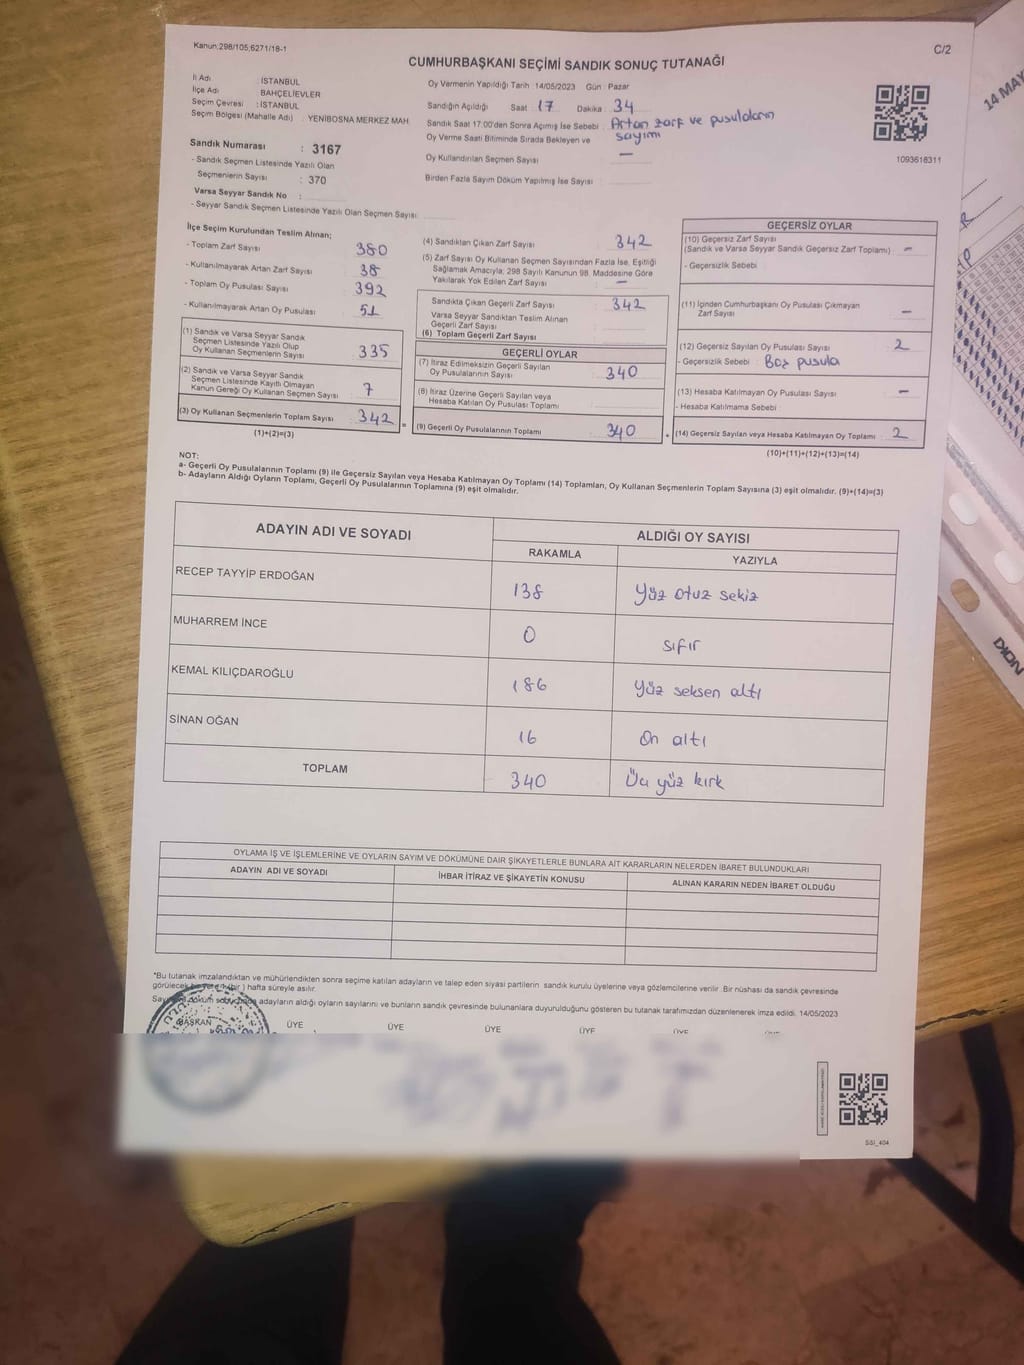 Kanun:298/105,6271/18-1
C/2
CUMHURBAŞKANI SEÇİMİ SANDIK SONUÇ TUTANAĞI
İl Adı : İSTANBUL
İlçe Adı : BAHÇELİEVLER
Seçim Çevresi : İSTANBUL
Seçim Bölgesi (Mahalle Adı) : YENİBOSNA MERKEZ MAH.
Sandık Numarası : 3167
- Sandık Seçmen Listesinde Yazılı Olan
Seçmenlerin Sayısı : 370
Varsa Seyyar Sandık No :
- Seyyar Sandık Seçmen Listesinde Yazılı Olan Seçmen Sayısı
Oy Vermenin Yapıldığı Tarih 14/05/2023 Gün : Pazar
Sandığın Açıldığı Saat 17 Dakika : 34
Sandık Saat 17.00'den Sonra Açımış İse Sebebi : Artan zarf ve pusulaların
sayımı
Oy Verme Saati Bitiminde Sırada Bekleyen ve
Oy Kullandırılan Seçmen Sayısı : —
Birden Fazla Sayım Döküm Yapılmış İse Sayısı :
1093618311
14 MAY
İlçe Seçim Kurulundan Teslim Alınan;
- Toplam Zarf Sayısı 380
- Kullanılmayarak Artan Zarf Sayısı 38
- Toplam Oy Pusulası Sayısı 392
- Kullanılmayarak Artan Oy Pusulası 51
(1) Sandık ve Varsa Seyyar Sandık
Seçmen Listesinde Yazılı Olup
Oy Kullanan Seçmenlerin Sayısı 335
(2) Sandık ve Varsa Seyyar Sandık
Seçmen Listesinde Kayıtlı Olmayan
Kanun Gereği Oy Kullanan Seçmen Sayısı 7
(3) Oy Kullanan Seçmenlerin Toplam Sayısı 342
(1)+(2)=(3)
(4) Sandıktan Çıkan Zarf Sayısı 342
(5) Zarf Sayısı Oy Kullanan Seçmen Sayısından Fazla İse, Eşitliği
Sağlamak Amacıyla; 298 Sayılı Kanunun 98. Maddesine Göre
Yakılarak Yok Edilen Zarf Sayısı : —
Sandıkta Çıkan Geçerli Zarf Sayısı 342
Varsa Seyyar Sandıktan Teslim Alınan
Geçerli Zarf Sayısı
(6) Toplam Geçerli Zarf Sayısı
GEÇERLİ OYLAR
(7) İtiraz Edilmeksizin Geçerli Sayılan
Oy Pusulalarının Sayısı 340
(8) İtiraz Üzerine Geçerli Sayılan veya
Hesaba Katılan Oy Pusulası Toplamı
(9) Geçerli Oy Pusulalarının Toplamı 340
GEÇERSİZ OYLAR
(10) Geçersiz Zarf Sayısı
(Sandık ve Varsa Seyyar Sandık Geçersiz Zarf Toplamı) —
- Geçersizlik Sebebi
(11) İçinden Cumhurbaşkanı Oy Pusulası Çıkmayan
Zarf Sayısı —
(12) Geçersiz Sayılan Oy Pusulası Sayısı 2
- Geçersizlik Sebebi : Boş pusula
(13) Hesaba Katılmayan Oy Pusulası Sayısı —
- Hesaba Katılmama Sebebi
(14) Geçersiz Sayılan veya Hesaba Katılmayan Oy Toplamı 2
(10)+(11)+(12)+(13)=(14)
NOT:
a- Geçerli Oy Pusulalarının Toplamı (9) ile Geçersiz Sayılan veya Hesaba Katılmayan Oy Toplamı (14) Toplamları, Oy Kullanan Seçmenlerin Toplam Sayısına (3) eşit olmalıdır. (9)+(14)=(3)
b- Adayların Aldığı Oyların Toplamı, Geçerli Oy Pusulalarının Toplamına (9) eşit olmalıdır.
ADAYIN ADI VE SOYADI ALDIĞI OY SAYISI
RAKAMLA YAZIYLA
RECEP TAYYİP ERDOĞAN 138 Yüz otuz sekiz
MUHARREM İNCE 0 sıfır
KEMAL KILIÇDAROĞLU 186 Yüz seksen altı
SİNAN OĞAN 16 On altı
TOPLAM 340 Üç yüz kırk
OYLAMA İŞ VE İŞLEMLERİNE VE OYLARIN SAYIM VE DÖKÜMÜNE DAİR ŞİKAYETLERLE BUNLARA AİT KARARLARIN NELERDEN İBARET BULUNDUKLARI
ADAYIN ADI VE SOYADI İHBAR İTİRAZ VE ŞİKAYETİN KONUSU ALINAN KARARIN NEDEN İBARET OLDUĞU
*Bu tutanak imzalandıktan ve mühürlendikten sonra seçime katılan adayların ve talep eden siyasi partilerin sandık kurulu üyelerine veya gözlemcilerine verilir. Bir nüshası da sandık çevresinde
görülecek bir yere (bir) hafta süreyle asılır.
adayların aldığı oyların sayılarını ve bunların sandık çevresinde bulunanlara duyurulduğunu gösteren bu tutanak tarafımızdan düzenlenerek imza edildi. 14/05/2023
BAŞKAN ÜYE ÜYE ÜYE ÜYE ÜYE
SSI_404